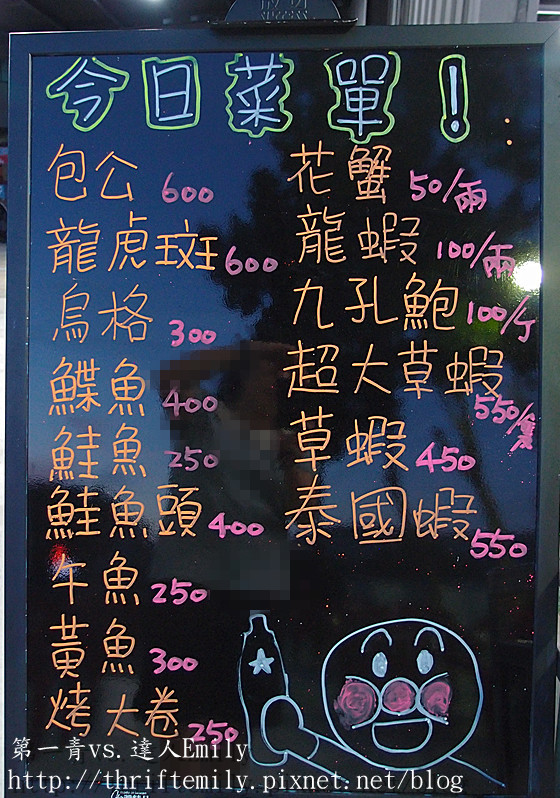 今日菜單!
包公 600
龍虎斑 600
烏格 300
鰈魚 400
鮭魚 250
鮭魚頭 400
午魚 250
黃魚 300
烤大卷 250
花蟹 50/兩
龍蝦 100/兩
九孔鮑 100/斤
超大草蝦 550/隻
草蝦 450
泰國蝦 550
第一青vs.達人Emily
http://thriftemily.pixnet.net/blog